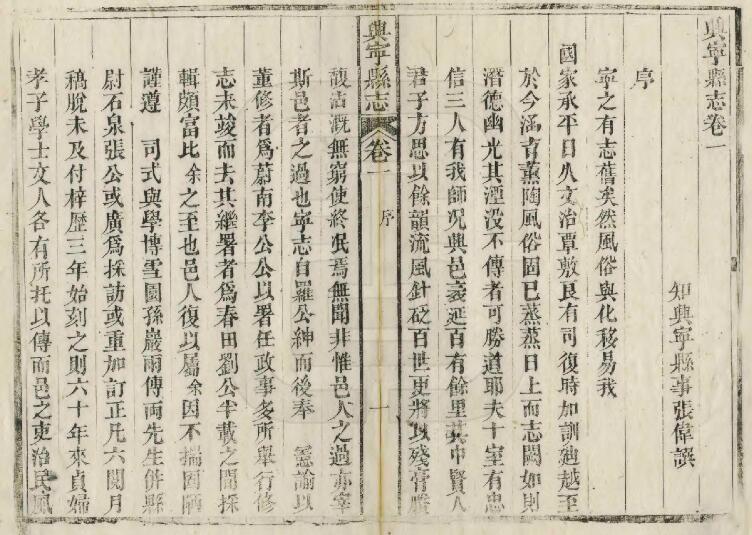 興寧縣志卷一
知興寧縣事張偉譔
序
寧之有志舊矣然風俗與化移易我
國家承平日久文治覃敷良有司復時加訓廸越至
於今涵育薫陶風俗固已蒸蒸日上而志闕如則
潛德幽光其湮没不傳者可勝道耶夫十室有忠
信三人有我師况興邑袤延百有餘里其中賢人
君子方思以餘韻流風針砭百世更將以殘膏賸
興寧縣志
卷一
序
一
馥沾漑無窮使終泯焉無聞非惟邑人之過亦宰
斯邑者之過也寧志自羅公紳而後奉 憲諭以
董修者爲蔚南李公公以署任政事多所舉行修
志未竣而去其繼署者爲春田劉公半載之間採
輯頗富比余之至也邑人復以屬余因不揣固陋
謹遵 司式與學博雪園孫巖雨傅両先生倂縣
尉石泉張公或廣爲採訪或重加訂正凡六閱月
稿脫未及付梓歴三年始刻之則六十年來貞婦
孝子學士文人各有所托以傳而邑之吏治民風